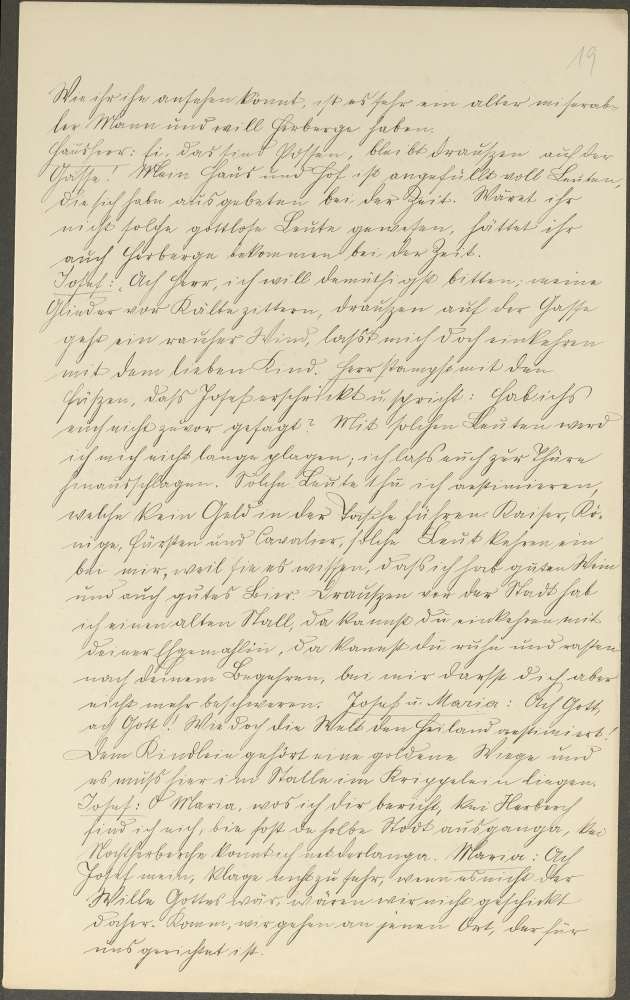 19
Wie ihr ihn ansehen könnt, ist es sehr ein alter miserab-
ler Mann und will Herberge haben.
Hausherr: Ei, das sind Possen, bleibt draußzen auf der
Gasse! Mein Haus und Hof ist angefüllt voll Leuten,
die sich habn ausgebeten bei der Zeit. Wäret ihr
nicht solche gottlose Leute gewesen, hättet ihr
auch Herberge bekommen bei der Zeit.
Josef: Ach Herr, ich will demüthigst bitten; meine
Glieder vor Kälte zittern, draußzen auf der Gasse
geht ein rauher Wind, lasst mich doch einkehren
mit dem lieben Kind. Herr stampft mit den
Füszen, dass Josef erschrickt u. spricht: Hab ichs
euch nicht zuvor gesagt? Mit solchen Leuten werd
ich mich nicht lange plagen, ich lass euch zur Thüre
hinausschlagen. Solche Leute thu ich aestimieren,
welche kein Geld in der Tasche führen. Kaiser, Kö-
nige, Fürsten und Cavalier, solche Leut kehren ein
bei mir, weil sie es wissen, dass ich hab guten Wein
und auch gutes Bier. Drauszen vor der Stadt hab
ich einen alten Stall, da kannst du einkehren mit
deiner Ehgemahlin, da kannst du ruhn und rasten
nach deinem Begehren, bei mir darfst dich aber
nicht mehr beschweren. Josef u. Maria: Ach Gott,
ach Gott! Wie doch die Welt den Heiland aestimiert!
Dem Kindlein gehört eine goldene Wiege und
es muss hier im Stalle im Krippelein liegen.
Josef: O Maria, wos ich dir bericht, kei Herberch
find ich nich, bie fost de holbe Stodt ausganga, kei
Nochtherberche konnt ich net derlanga. Maria: Ach
Josef mein, klage nicht zu sehr, wenn es nicht der
Wille Gottes wär, wären wir nicht geschickt
daher. Komm, wir gehen an jenen Ort, der für
uns gerichtet ist.